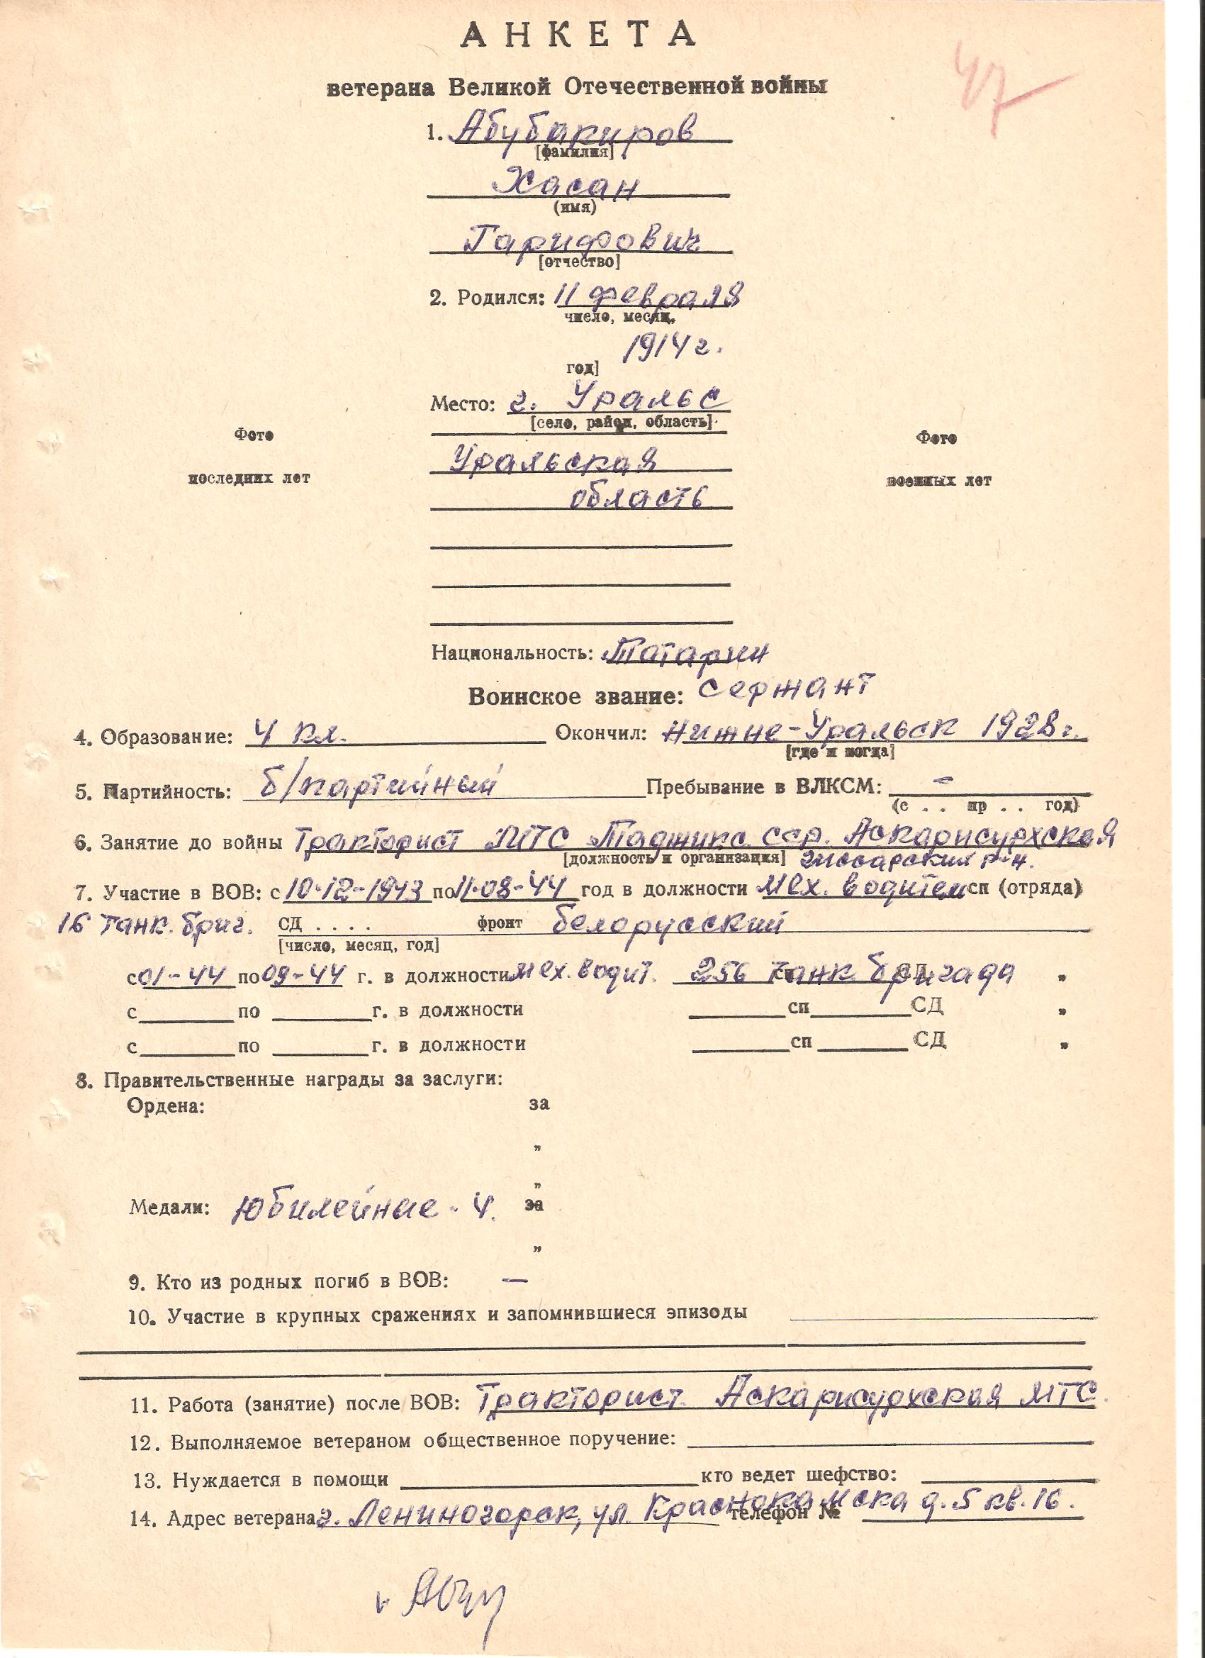 АНКЕТА
47
ветерана Великой Отечественной войны
1. Абубакиров
[фамилия]
Хасан
(имя)
Гарифович
[отчество]
2. Родился: 11 февраля
число, месяц,
1914 г.
год]
Место: г. Уральс
[село, район, область]
Фото
последних лет
Фото
военных лет
Уральская
область
Национальность: Татарин
Воинское звание: сержант
4. Образование: 4 кл. Окончил: Нижне-Уральск 1928 г.
[где и когда]
5. Партийность: б/партийный Пребывание в ВЛКСМ: –
(с . . пр . . год)
6. Занятие до войны Тракторист МТС Таджикс сср. Аскарисурхская
[должность и организация] Гиссарский р-н.
7. Участие в ВОВ: с 10-12-1943 по 11-08-44 год в должности мех. водител сп (отряда)
16 танк. бриг. СД . . . . фронт белорусский
[число, месяц, год]
с 01-44 по 09-44 г. в должности мех. водит. 256 танк бригада сп СД "
с по г. в должности сп СД "
с по г. в должности сп СД "
8. Правительственные награды за заслуги:
Ордена: за
"
"
Медали: Юбилейные - 4. за
"
9. Кто из родных погиб в ВОВ: —
10. Участие в крупных сражениях и запомнившиеся эпизоды
11. Работа (занятие) после ВОВ: Тракторист Аскарисурхская МТС.
12. Выполняемое ветераном общественное поручение:
13. Нуждается в помощи кто ведет шефство:
14. Адрес ветерана г. Лениногорск, ул. Краснокамска д. 5 кв. 16. телефон №